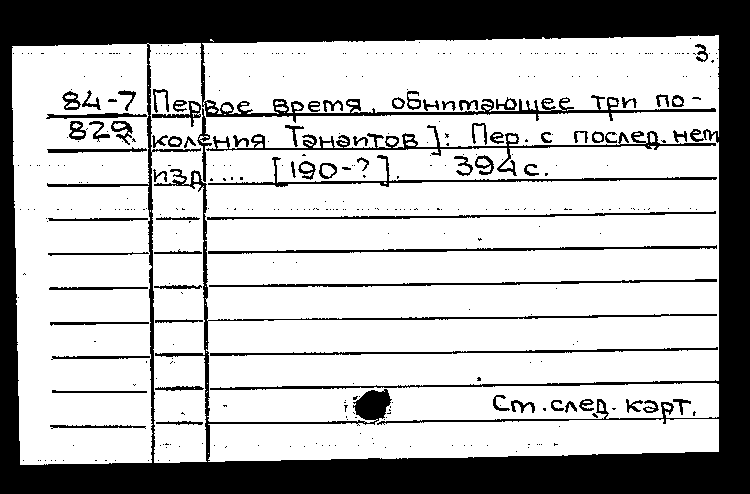 3.
84-7 Первое время, обнимающее три по-
829 коления Танаитов]: Пер. с послед. нем
изд.... [190-?]. 394 с.
Ст. след. карт.